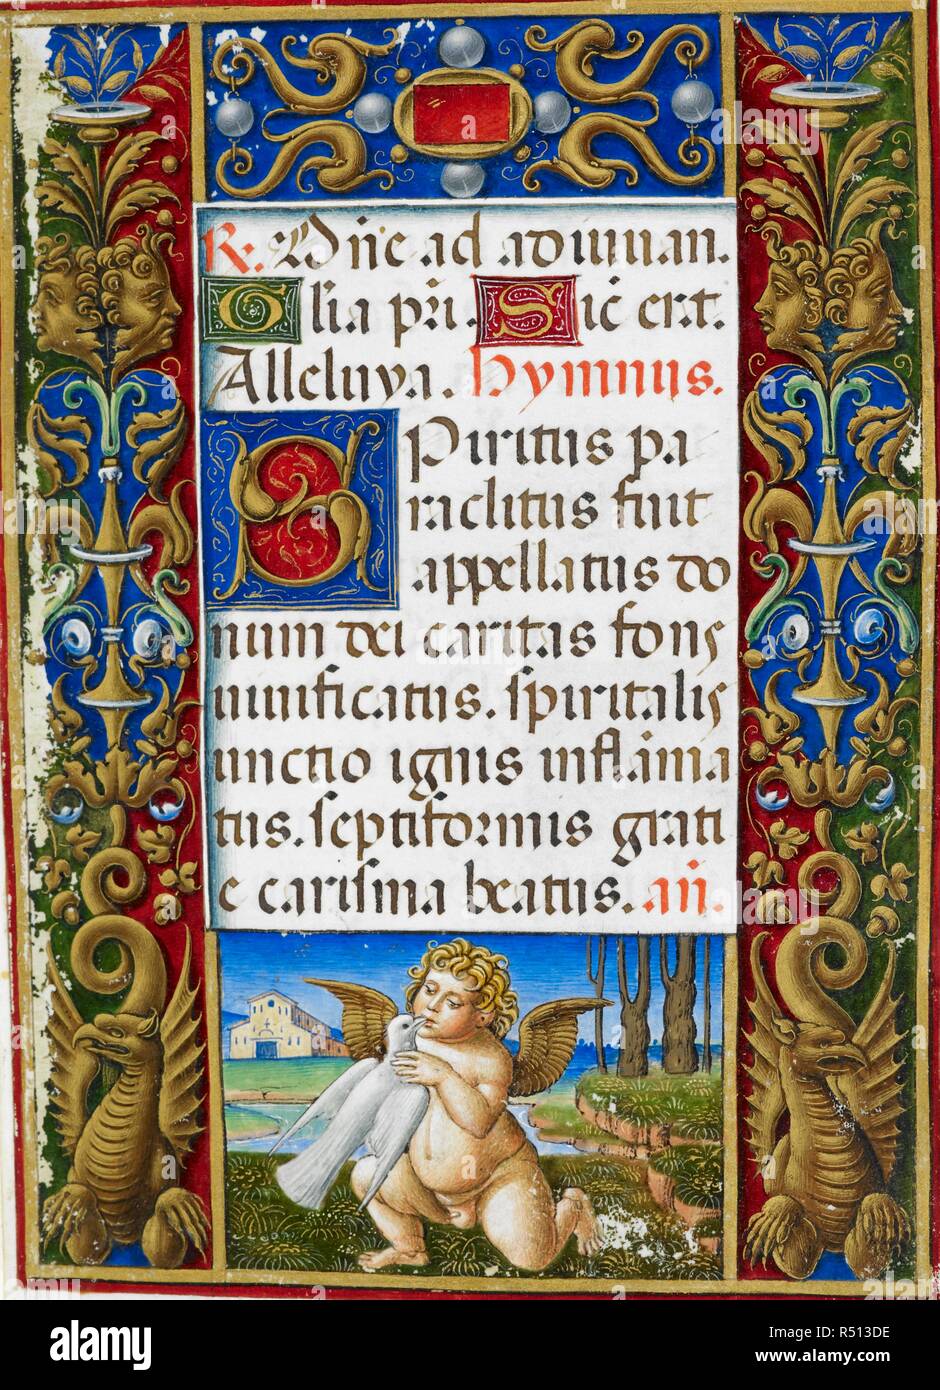 R. Dn̄e ad adiuuan.
Glia pr̄i. Sic̄ erat.
Alleluya. hymnus.
Spiritus pa
raclitus fuit
appellatus do
num dei caritas fons
uiuificatus. spiritalis
unctio ignis inflāma
tus. septiformis grati
e carisma beatus. an̄.
alamy
alamy
Image ID: R513DE
www.alamy.com